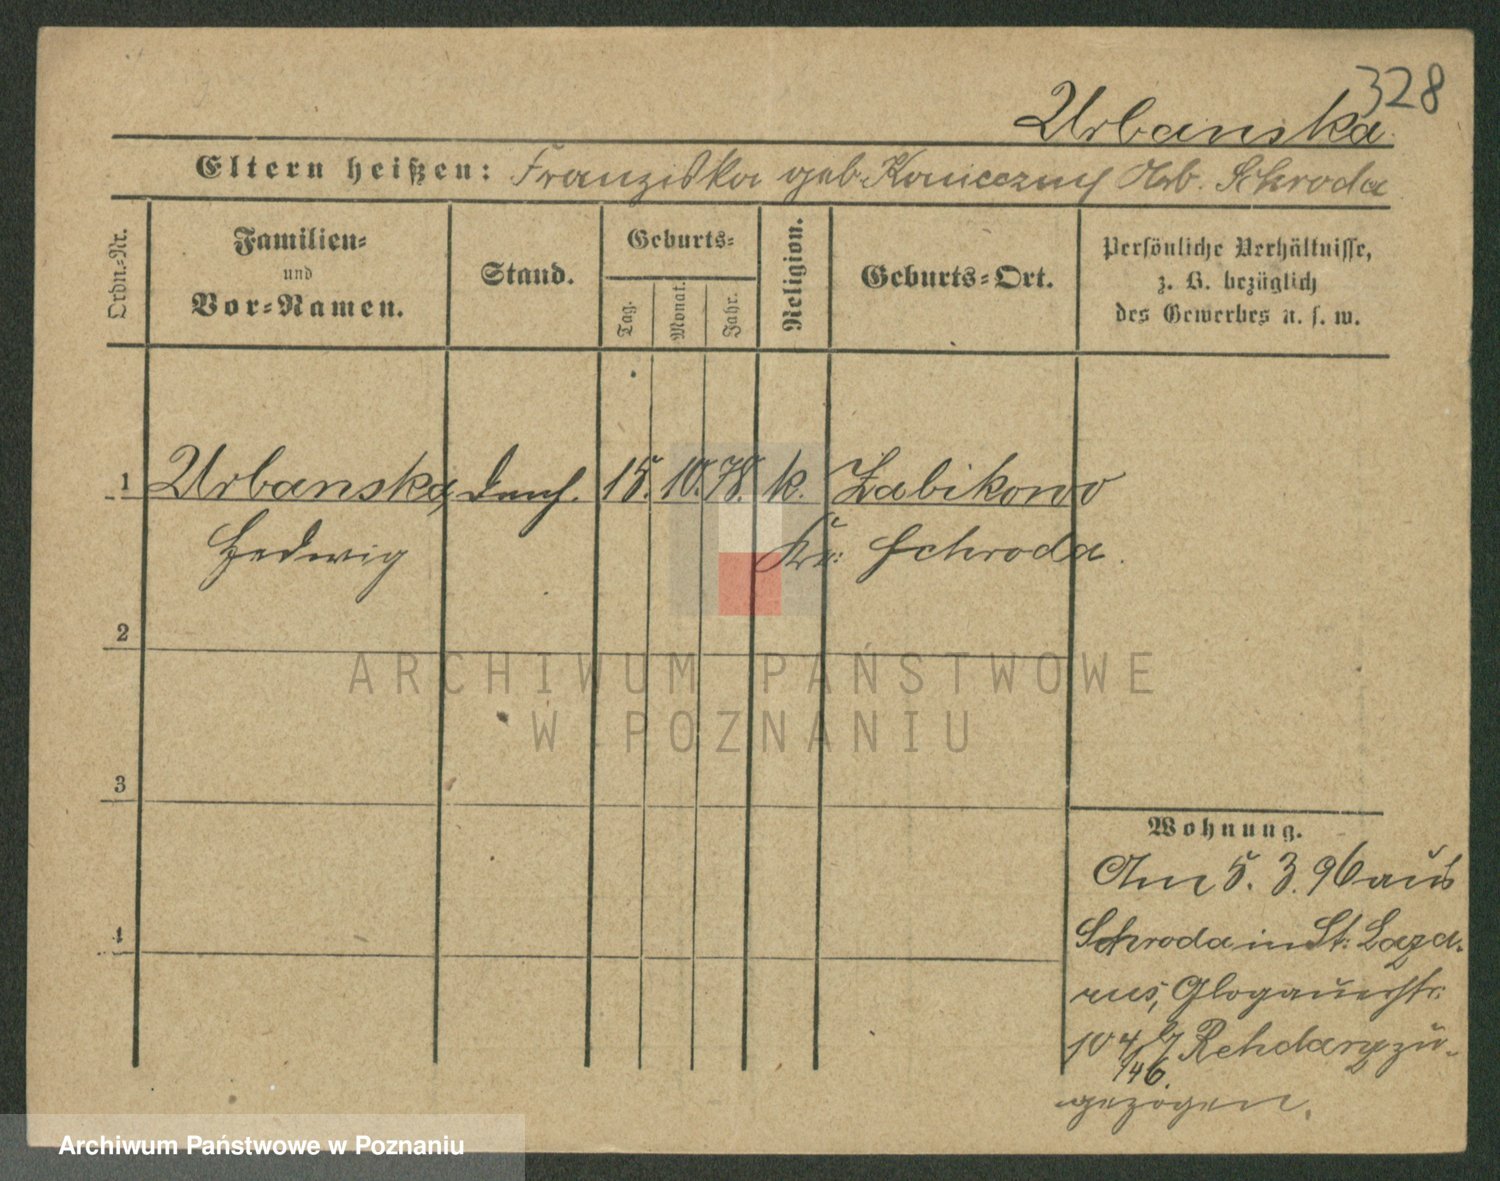 328
Urbanska
Eltern heißen: Franziska geb. Konieczny Schroda
Ordn.-Nr.
Familien-
und
Vor-Namen.
Stand.
Geburts-
Tag.
Monat.
Jahr.
Religion.
Geburts-Ort.
Persönliche Verhältnisse,
z. B. bezüglich
des Gewerbes u. s. w.
1 Urbanska, 15. 10. 78. k. Zabikowo
Hedwig Kr: Schroda.
2
ARCHIWUM PAŃSTWOWE
W POZNANIU
3
Wohnung.
Am 5. 3. 96 aus
4
Schroda in St: Laza-
rus, Glogauerstr:
104 b/ Rehdanz zu-
146.
gezogen.
Archiwum Państwowe w Poznaniu